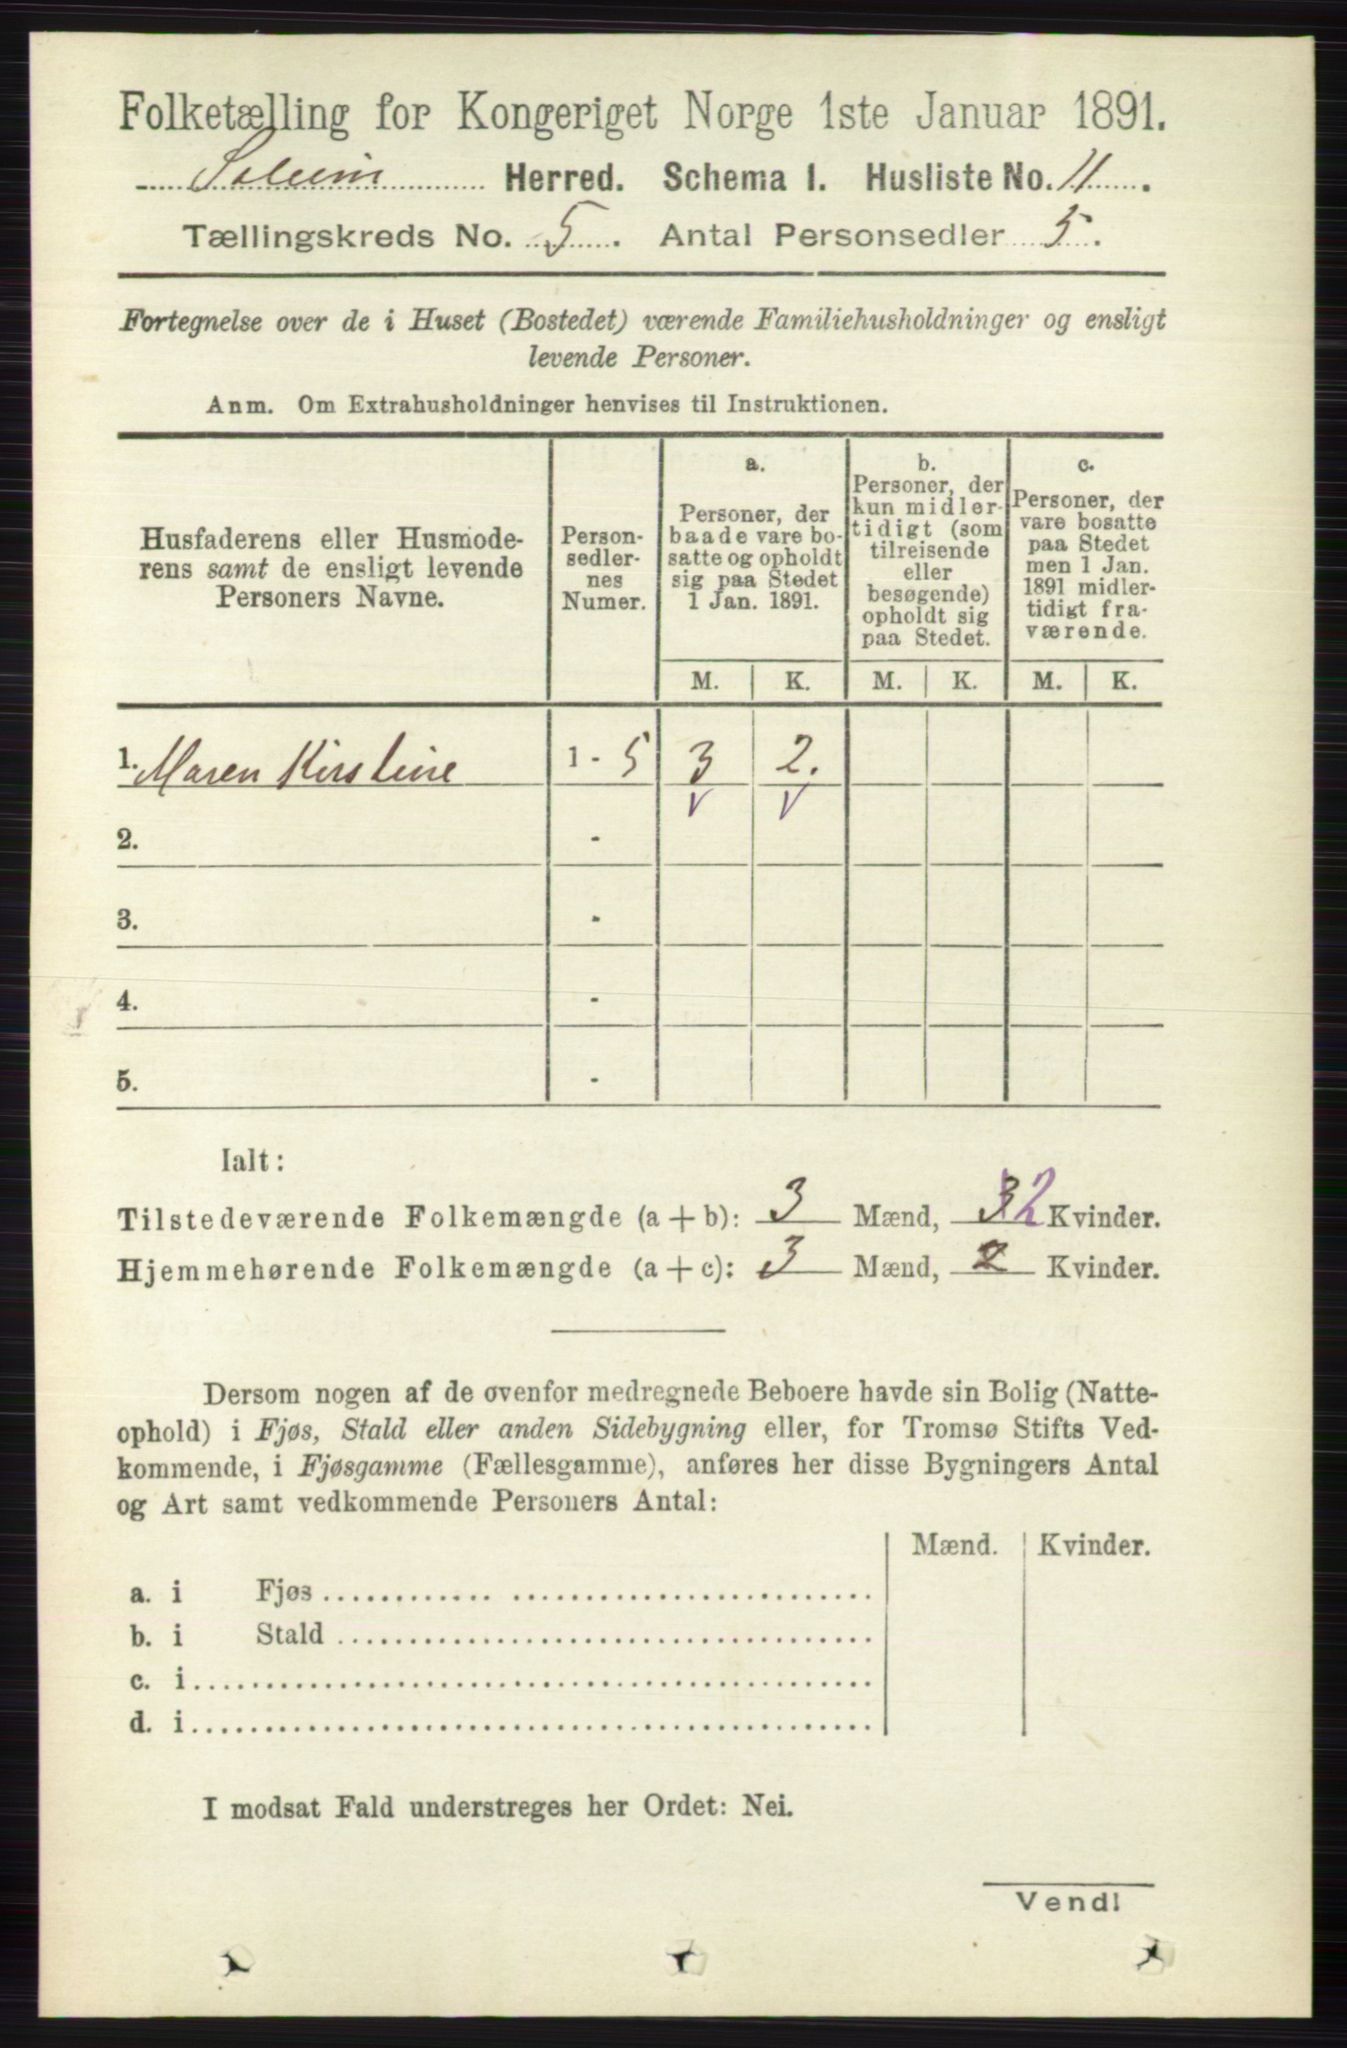 Folketælling for Kongeriget Norge 1ste Januar 1891.
Solum Herred. Schema 1. Husliste No. 11.
Tællingskreds No. 5. Antal Personsedler 5.
Fortegnelse over de i Huset (Bostedet) værende Familiehusholdninger og ensligt
levende Personer.
Anm. Om Extrahusholdninger henvises til Instruktionen.
Husfaderens eller Husmode-
rens samt de ensligt levende
Personers Navne.
Person-
sedler-
nes
Numer.
a.
Personer, der
baade vare bo-
satte og opholdt
sig paa Stedet
1 Jan. 1891.
b.
Personer, der
kun midler-
tidigt (som
tilreisende
eller
besøgende)
opholdt sig
paa Stedet.
c.
Personer, der
vare bosatte
paa Stedet
men 1 Jan.
1891 midler-
tidigt fra-
værende.
M. K. M. K. M. K.
1. Maren Kirstine 1 - 5 3 2.
v v
2. -
3. -
4. -
5. -
Ialt:
Tilstedeværende Folkemængde (a + b): 3 Mænd, 32 Kvinder.
Hjemmehørende Folkemængde (a + c): 3 Mænd, 2 Kvinder.
Dersom nogen af de ovenfor medregnede Beboere havde sin Bolig (Natte-
ophold) i Fjøs, Stald eller anden Sidebygning eller, for Tromsø Stifts Ved-
kommende, i Fjøsgamme (Fællesgamme), anføres her disse Bygningers Antal
og Art samt vedkommende Personers Antal:
Mænd. Kvinder.
a. i Fjøs
b. i Stald
c. i
d. i
I modsat Fald understreges her Ordet: Nei.
Vend!